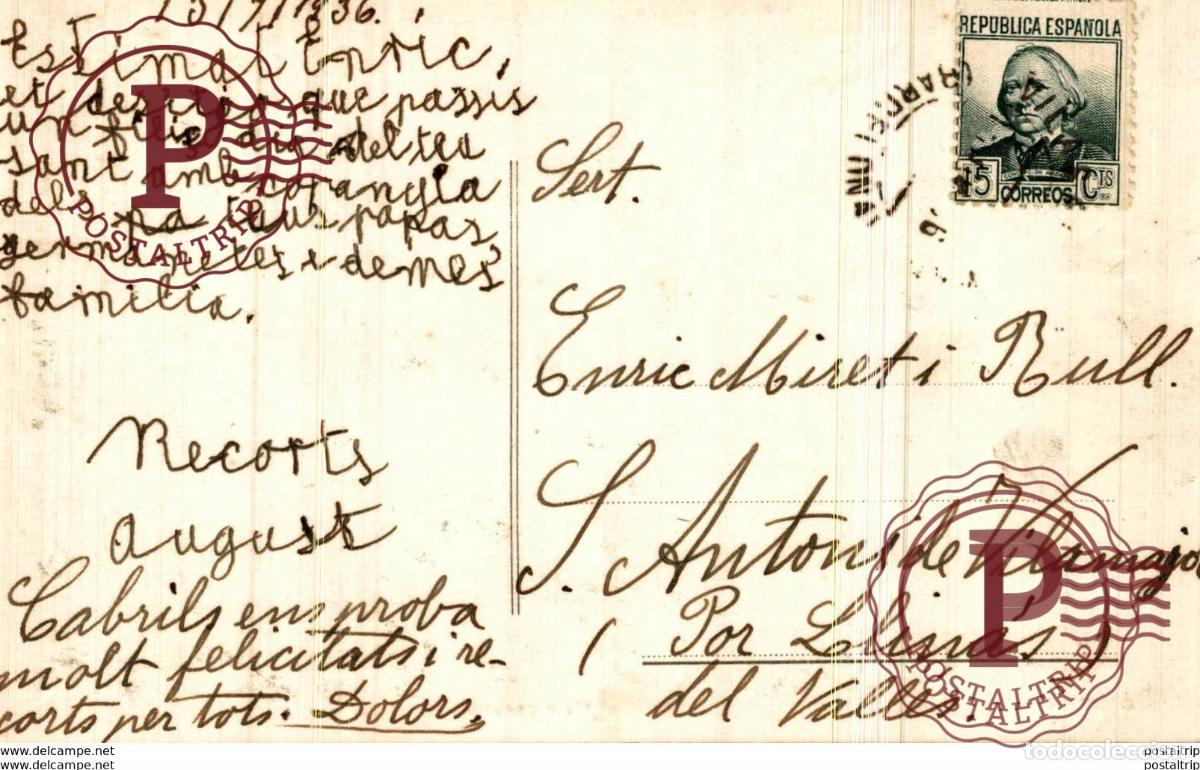 13/7/1936.
Estimat Enric,
et desitjo que passis
un feliç dia del teu
sant amb companyia
del pa teus papas
germanetes i demés
familia.
Recorts
August
Cabrils ens proba
molt felicitats i re-
corts per tots. Dolors.
REPÚBLICA ESPAÑOLA
15 CTS
CORREOS
Sert.
Enric Miret i Rull.
S. Antoni de Vilamajor
(Por Llinás)
del Vallés.
P
POSTALTRIP
P
POSTALTRIP
todocoleccion
www.delcampe.net
postaltrip
www.delcampe.net
postaltrip